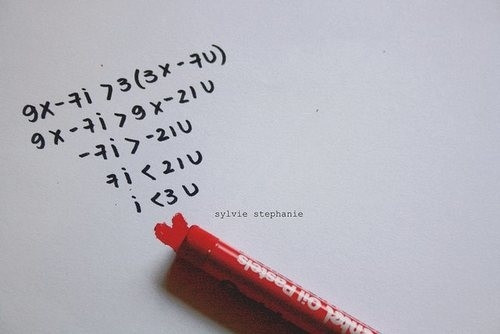 9x-7i > 3(3x-7U)
9x-7i > 9x-21U
-7i > -21U
7i < 21U
i <3 U
sylvie stephanie
Oil Pastels